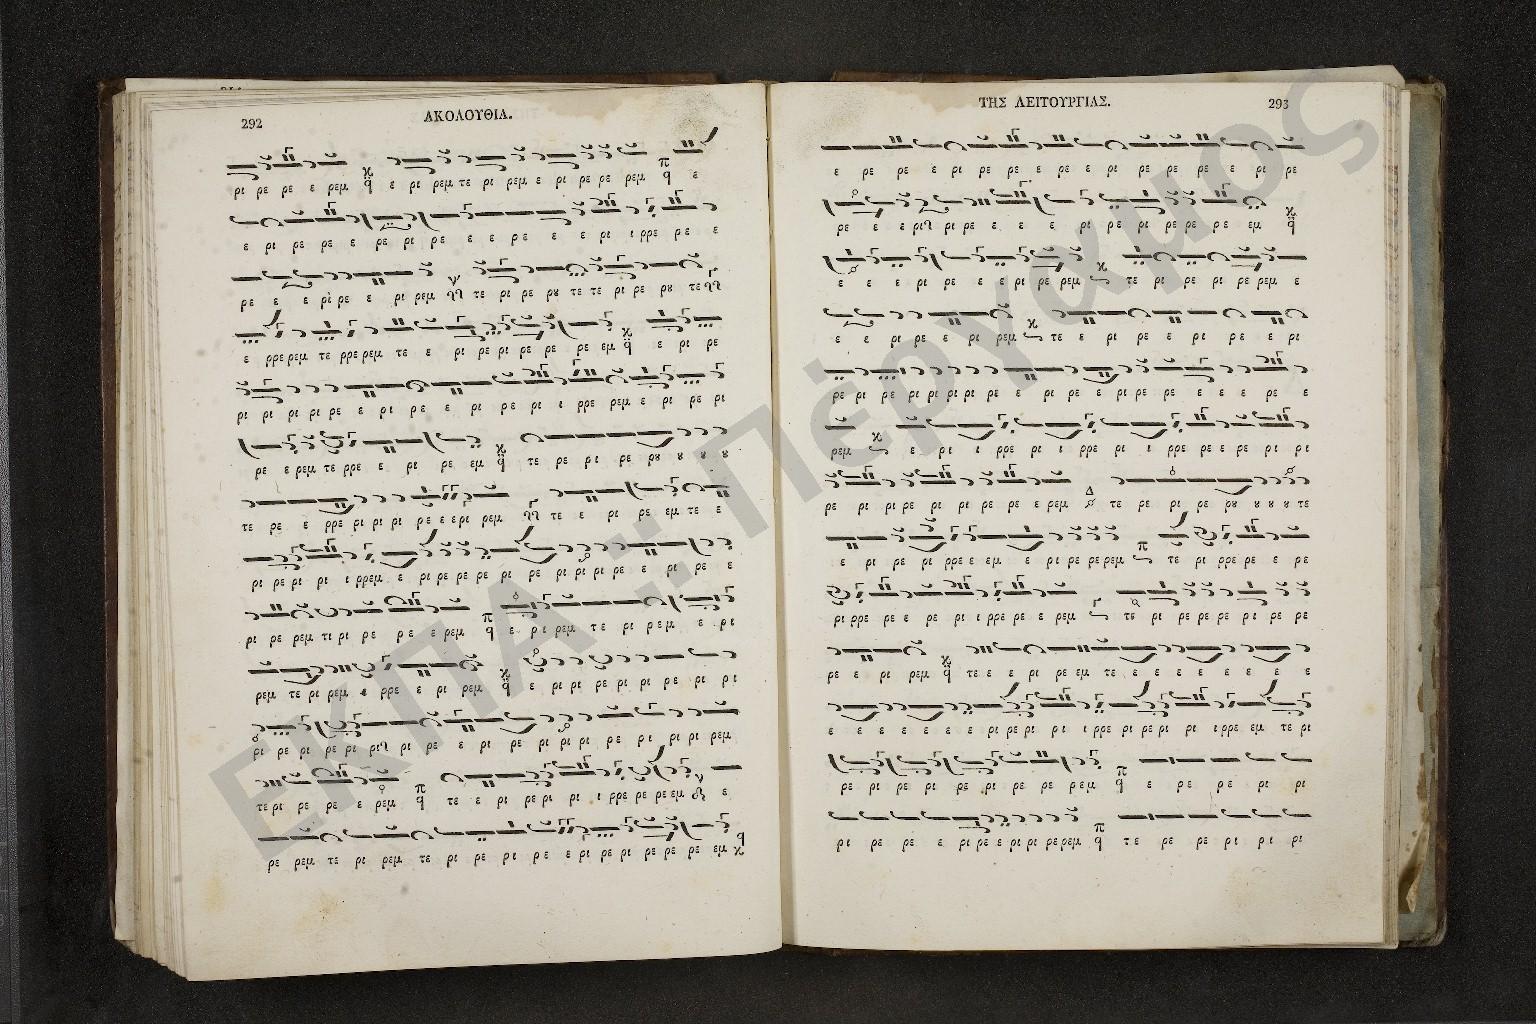 292
ΑΚΟΛΟΥΘΙΑ.
ρι ρε ρε ε ρεμ ε ρι ρεμ τε ρι ρεμ ε ρι ρε ρε ρεμ ε
ε ρι ρε ρε ε ρε ρι ρε ε ε ρε ε ε ρι ι ρρε ρε ε
ρε ε ε ρι ρε ε ρι ρεμ τε ρι ρε ρυ τε τε ρι ρε ρυ τε
ε ρρε ρεμ τε ρρε ρεμ τε ε ρι ρε ρι ρε ρε ρε εμ ε ρι ρε
ρι ρι ρι ρι ρε ε ρι ρε ε ρι ρε ρι ι ρρε ρεμ ε ρι ρε ρι
ρε ε ρεμ τε ρρε ε ρι ρε εμ τε ρε ρι ρε ρυ υ υ υ
τε ρε ε ρρε ρι ρι ρι ρε ε ε ρι ρεμ τε ε ρι ρε εμ τε ε
ρι ρε ρι ρι ι ρρεμ ε ρι ρε ρε ρε ρε ρι ρε ρι ρι ρι ρε ε ρι ρε ε
ρι ρε ρεμ τι ρι ρε ρε ε ρεμ ε ρι ρεμ τε ρι ρεμ ε ρι
ρεμ τε ρι ρεμ ε ρρε ε ρι ρεμ ε ρι ρι ρε ρι ρι ρε ρι ρι
ρι ρε ρι ρε ρι ρι ρι ρε ε ρι ρε ρι ρι ρι ρε ρι ρι ρι ρεμ
τε ρι ρε ρε ε ρεμ τε ε ρι ρε ρι ρι ι ρρε ρε ρε εμ ε
ρε ρεμ τε ρι ρεμ τε ρι ρε ρι ρε ε ρι ρε ρι ρε ρε ρε εμ
ΤΗΣ ΛΕΙΤΟΥΡΓΙΑΣ.
293
ε ρε ρε ε ρε ρε ε ρε ε ρι ρε ρε ρε ε ρι ρε
ρε ε ε ρι ρι ρε ε ε ε ρι ρε ρι ρε ρε ρε εμ
ε ε ε ρι ρε ε ε ρι ρε ρεμ τε ρι ρε ρι ρε ρεμ ε
ε ε ρι ρε ε ρι ρεμ τε ε ρι ρε ε ρι ρε ε ρι
ρε ρι ρε ρι ρι ρι ρι ρι ρε ε ρι ρε ε ρι ρε ρε ε ε ε ρε ε
ρεμ ε ρι ι ρρε ρι ι ρρε ρι ι ρρε ρε ε ρε ρι ρι
ρε ρι ρι ρε ρι ρι ρε ρε ε ρεμ τε ρε ρι ρε ρυ υ υ υ τε
ε ρι ρε ρι ρρε ε εμ ε ρι ρε ρε ρεμ τε ρι ρρε ρε ε ρε
ρι ρρε ρε ε ρε ρι ι ρρε ρε ε ρε τε ρι ρε ρε ρε ρι ρε ρε
ρε ε ρι ρεμ τε ε ε ρι ρε εμ τε ε ε ε ε ε ε ε
ε ε ε ε ε ε ε ρι ρε ρι ρι ι ρρε ρι ρε ρι ρι ι ρρε εμ τε ρι
ρε ρι ρε ρι ρε ρι ρε ρε ρε ρεμ ε ρε ρε ρι ρι
ρι ρε ρε ε ρι ρε ε ρι ρι ρε ρεμ τε ρε ρε ρι ρι ρι
ΕΚΠΑ :: Πέργαμος